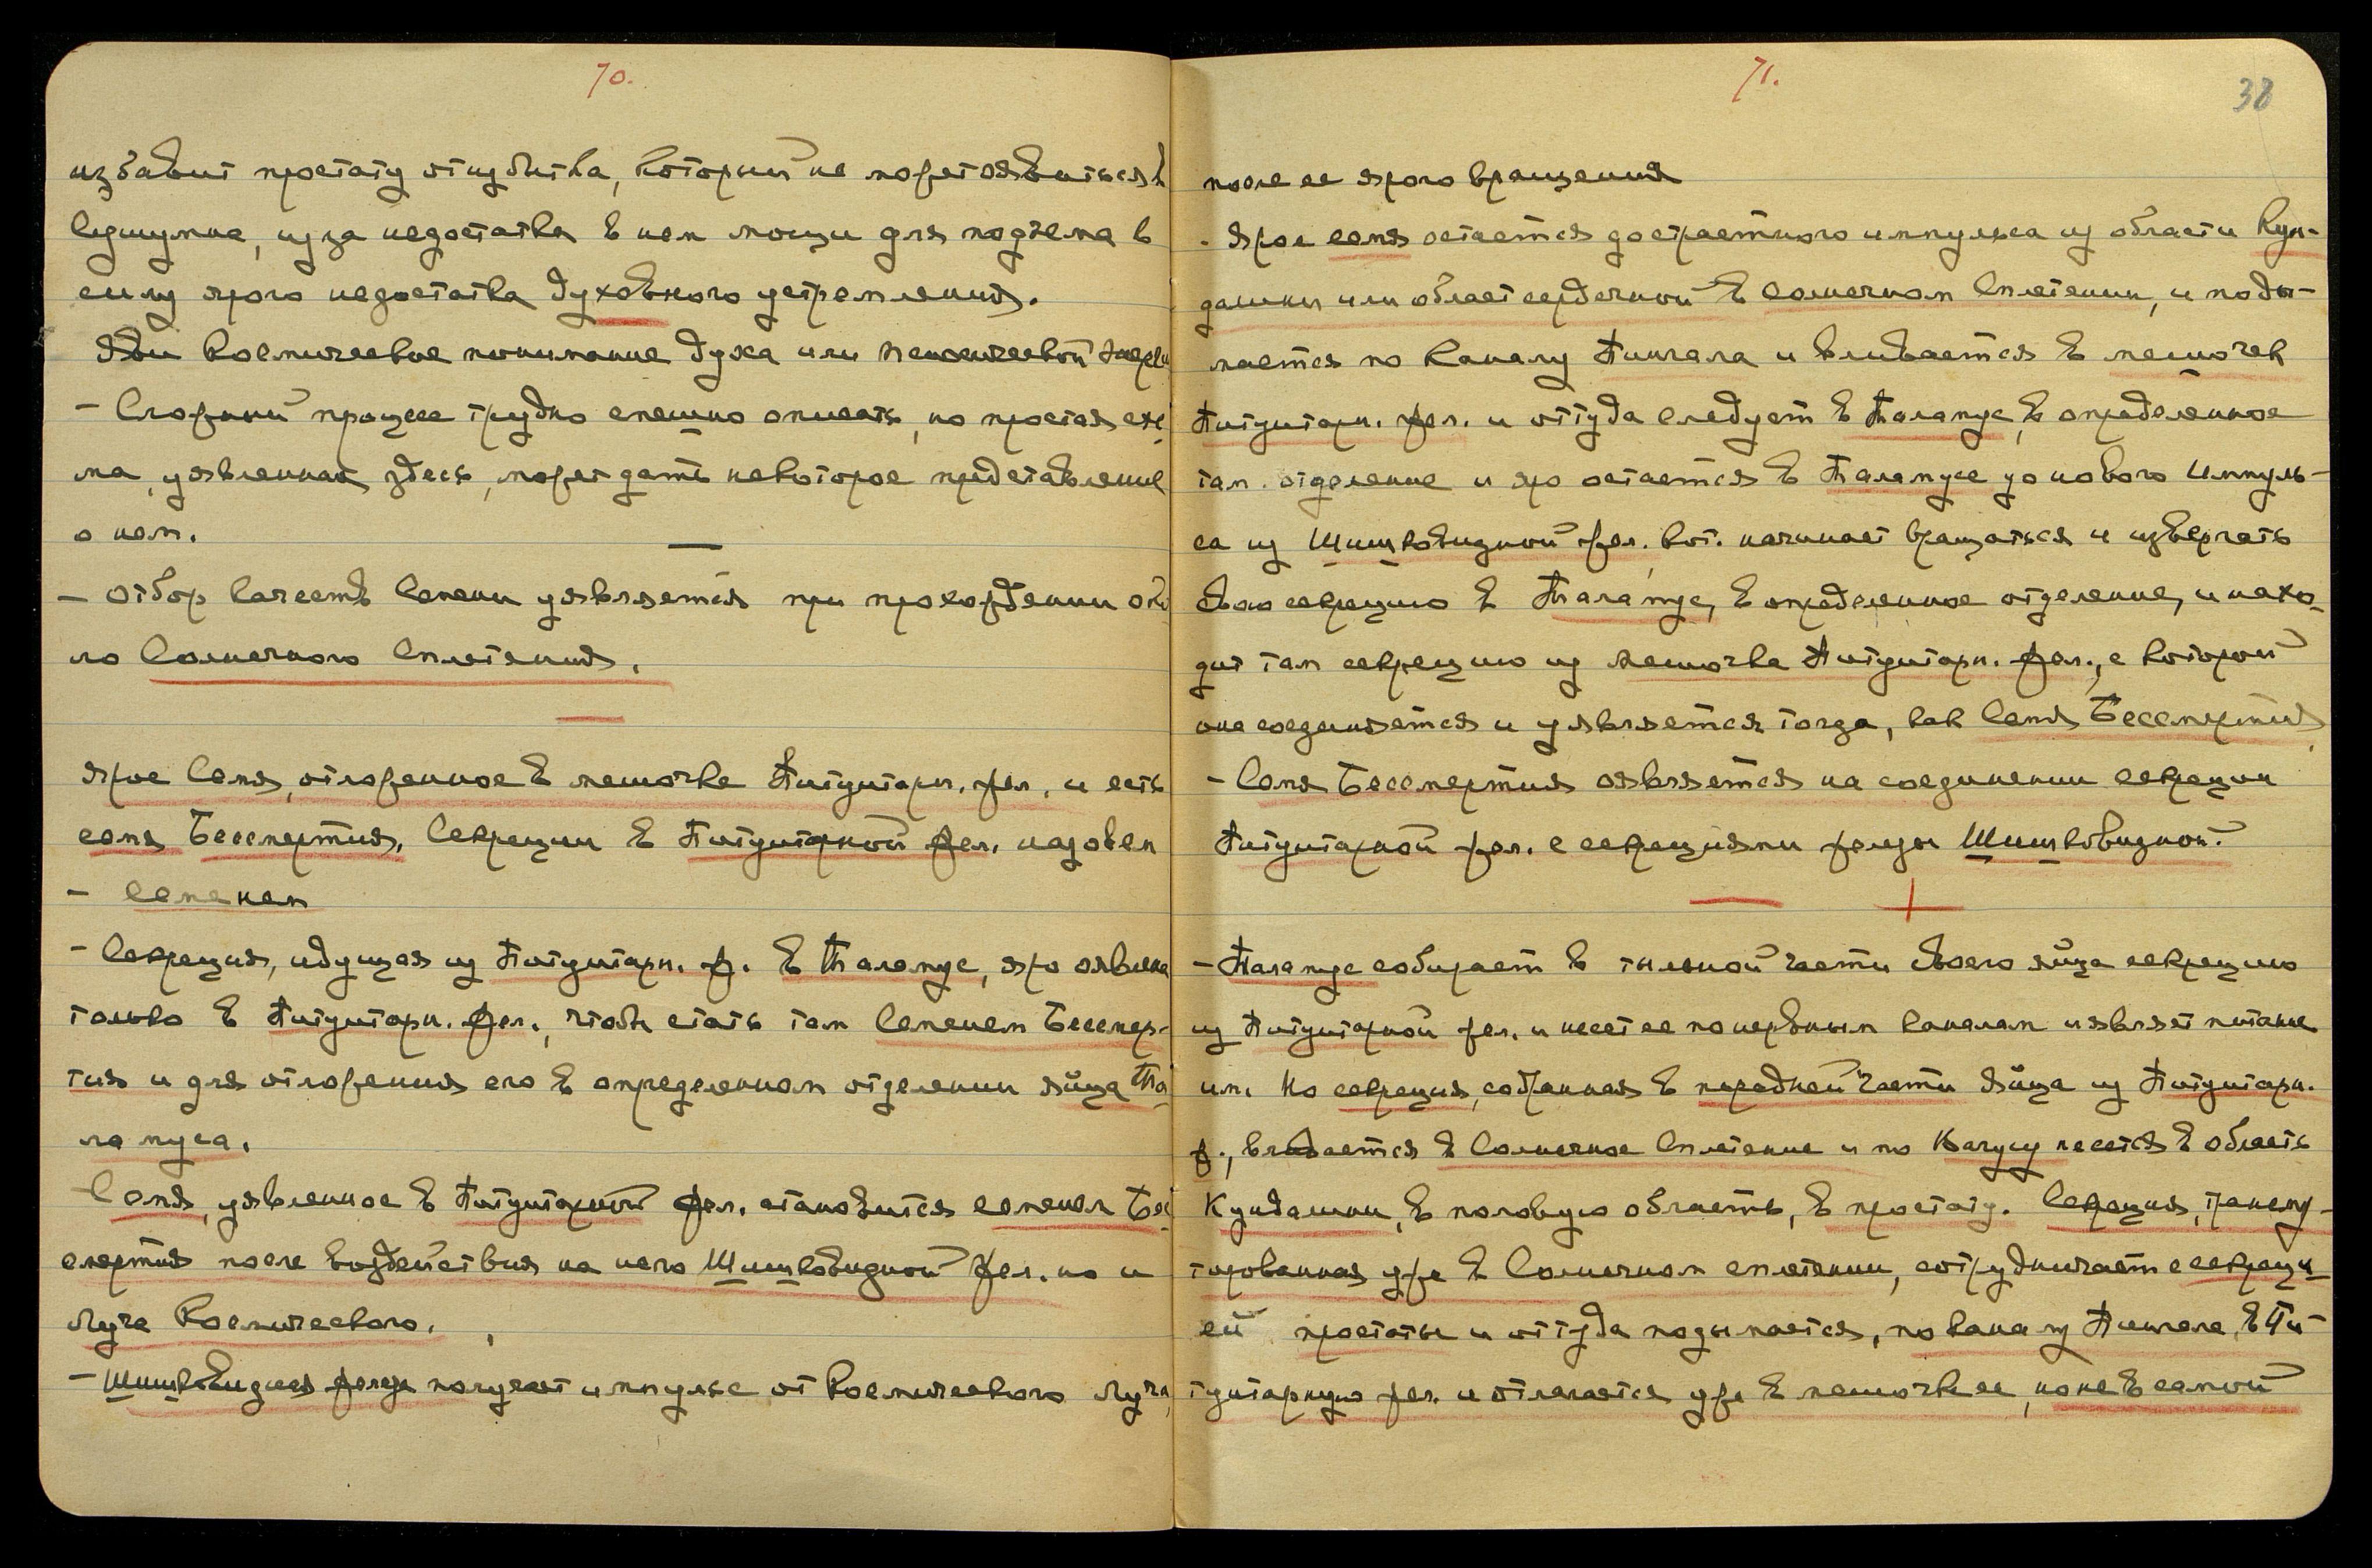 70.
избавит простату от избытка, который не может оявиться в
сушумне, из за недостатка в нем мощи для подъема в
силу ярого недостатка духовного устремления.
Яви космическое понимание духа или психической энергии
– Сложный процесс трудно спешно описать, но простая схе-
ма, уявленная здесь, может дать некоторое представление
о нем.
– Отбор качеств семени уявляется при прохождении око-
ло Солнечного Сплетения.
Ярое Семя, отложенное в мешочке Питуитарн. жел. и есть
семя Бессмертия. Секреции в Питуитарной жел. назовем
– семенем
– Секреция, идущая из Питуитарн. ж. в Таламус, яро оявлена
только в Питуитарн. жел., чтобы стать там Семенем Бессмер-
тия и для отложения его в определенном отделении яйца Та-
ламуса.
Семя, уявленное в Питуитарной жел. становится семенем Бес
смертия после воздействия на него Шишковидной жел. но и
Луча Космического.
– Шишковидная железа получает импульс от Космического Луча,
71.
38
после ее ярого вращения
– Ярое семя остается до страстного импульса из области Кун-
далини или област сердечной в солнечном Сплетении, и поды-
мается по каналу Пингала и вливается в мешочек
Питуитарн. жел. и оттуда следует в Таламус, в определенное
там отделение и яро остается в Таламусе до нового импуль-
са из Шишковидной жел. кот. начинает вращаться и извергать
свою секрецию в Таламус, в определенное отделение, и нахо-
дит там секрецию из мешочка Питуитарн. жел., с которой
она соединяется и уявляется тогда, как Семя Бессмертия
– Семя Бессмертия оявляется на соединении секреции
Питуитарной жел. с секрециями железы Шишковидной.
– Таламус собирает в тыльной части своего яйца секрецию
из Питуитарной жел. и несет ее по нервным каналам и являет питание
им. Но секреция, собранная в передней части Яйца из Питуитарн.
ж., вливается в Солнечное Сплетение и по Вагусу несется в область
Кундалини, в половую область, в простату. Секреция, трансму-
тированная уже в Солнечном сплетении, сотрудничает с секреци-
ей простаты и оттуда подымается, по каналу Пингала, в Пи-
туитарную жел. и отлагается уже в мешочке ее, но не в самой